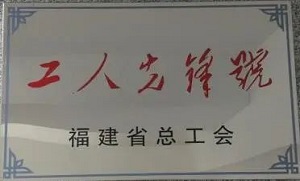 工人先锋號
福建省总工会